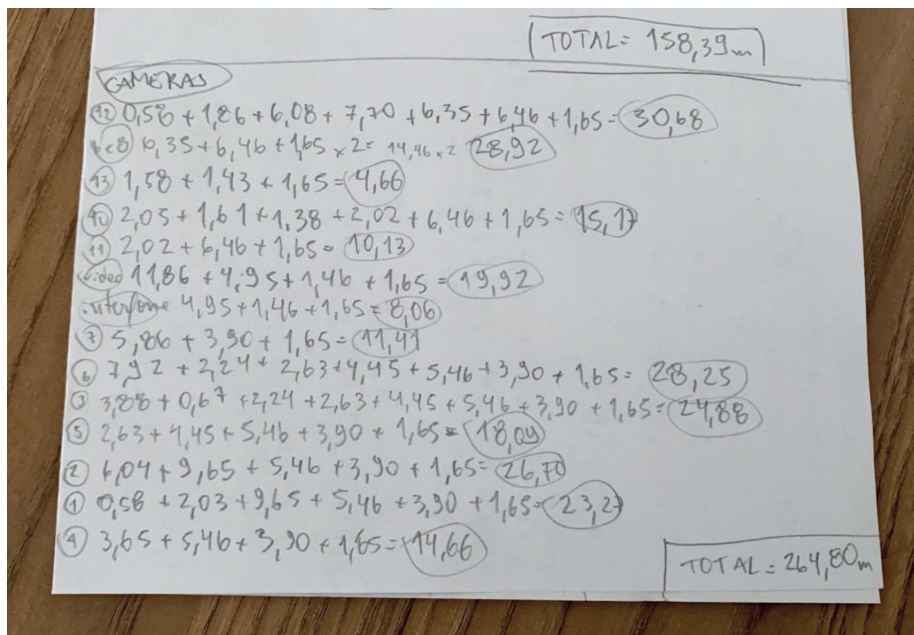 TOTAL = 158,39m
CAMERAS
12 0,58 + 1,86 + 6,08 + 7,70 + 6,35 + 6,46 + 1,65 = 30,68
e 8 6,35 + 6,46 + 1,65 x 2 = 14,46 x 2 28,92
13 1,58 + 1,43 + 1,65 = 4,66
10 2,05 + 1,61 + 1,38 + 2,02 + 6,46 + 1,65 = 15,17
11 2,02 + 6,46 + 1,65 = 10,13
video 11,86 + 4,95 + 1,46 + 1,65 = 19,92
interfone 4,95 + 1,46 + 1,65 = 8,06
7 5,86 + 3,90 + 1,65 = 11,41
6 7,92 + 2,24 + 2,63 + 4,45 + 5,46 + 3,90 + 1,65 = 28,25
3 3,88 + 0,67 + 2,24 + 2,63 + 4,45 + 5,46 + 3,90 + 1,65 = 24,88
5 2,63 + 4,45 + 5,46 + 3,90 + 1,65 = 18,09
2 6,04 + 9,65 + 5,46 + 3,90 + 1,65 = 26,70
1 0,58 + 2,03 + 9,65 + 5,46 + 3,90 + 1,65 = 23,27
4 3,65 + 5,46 + 3,90 + 1,65 = 14,66
TOTAL = 264,80m